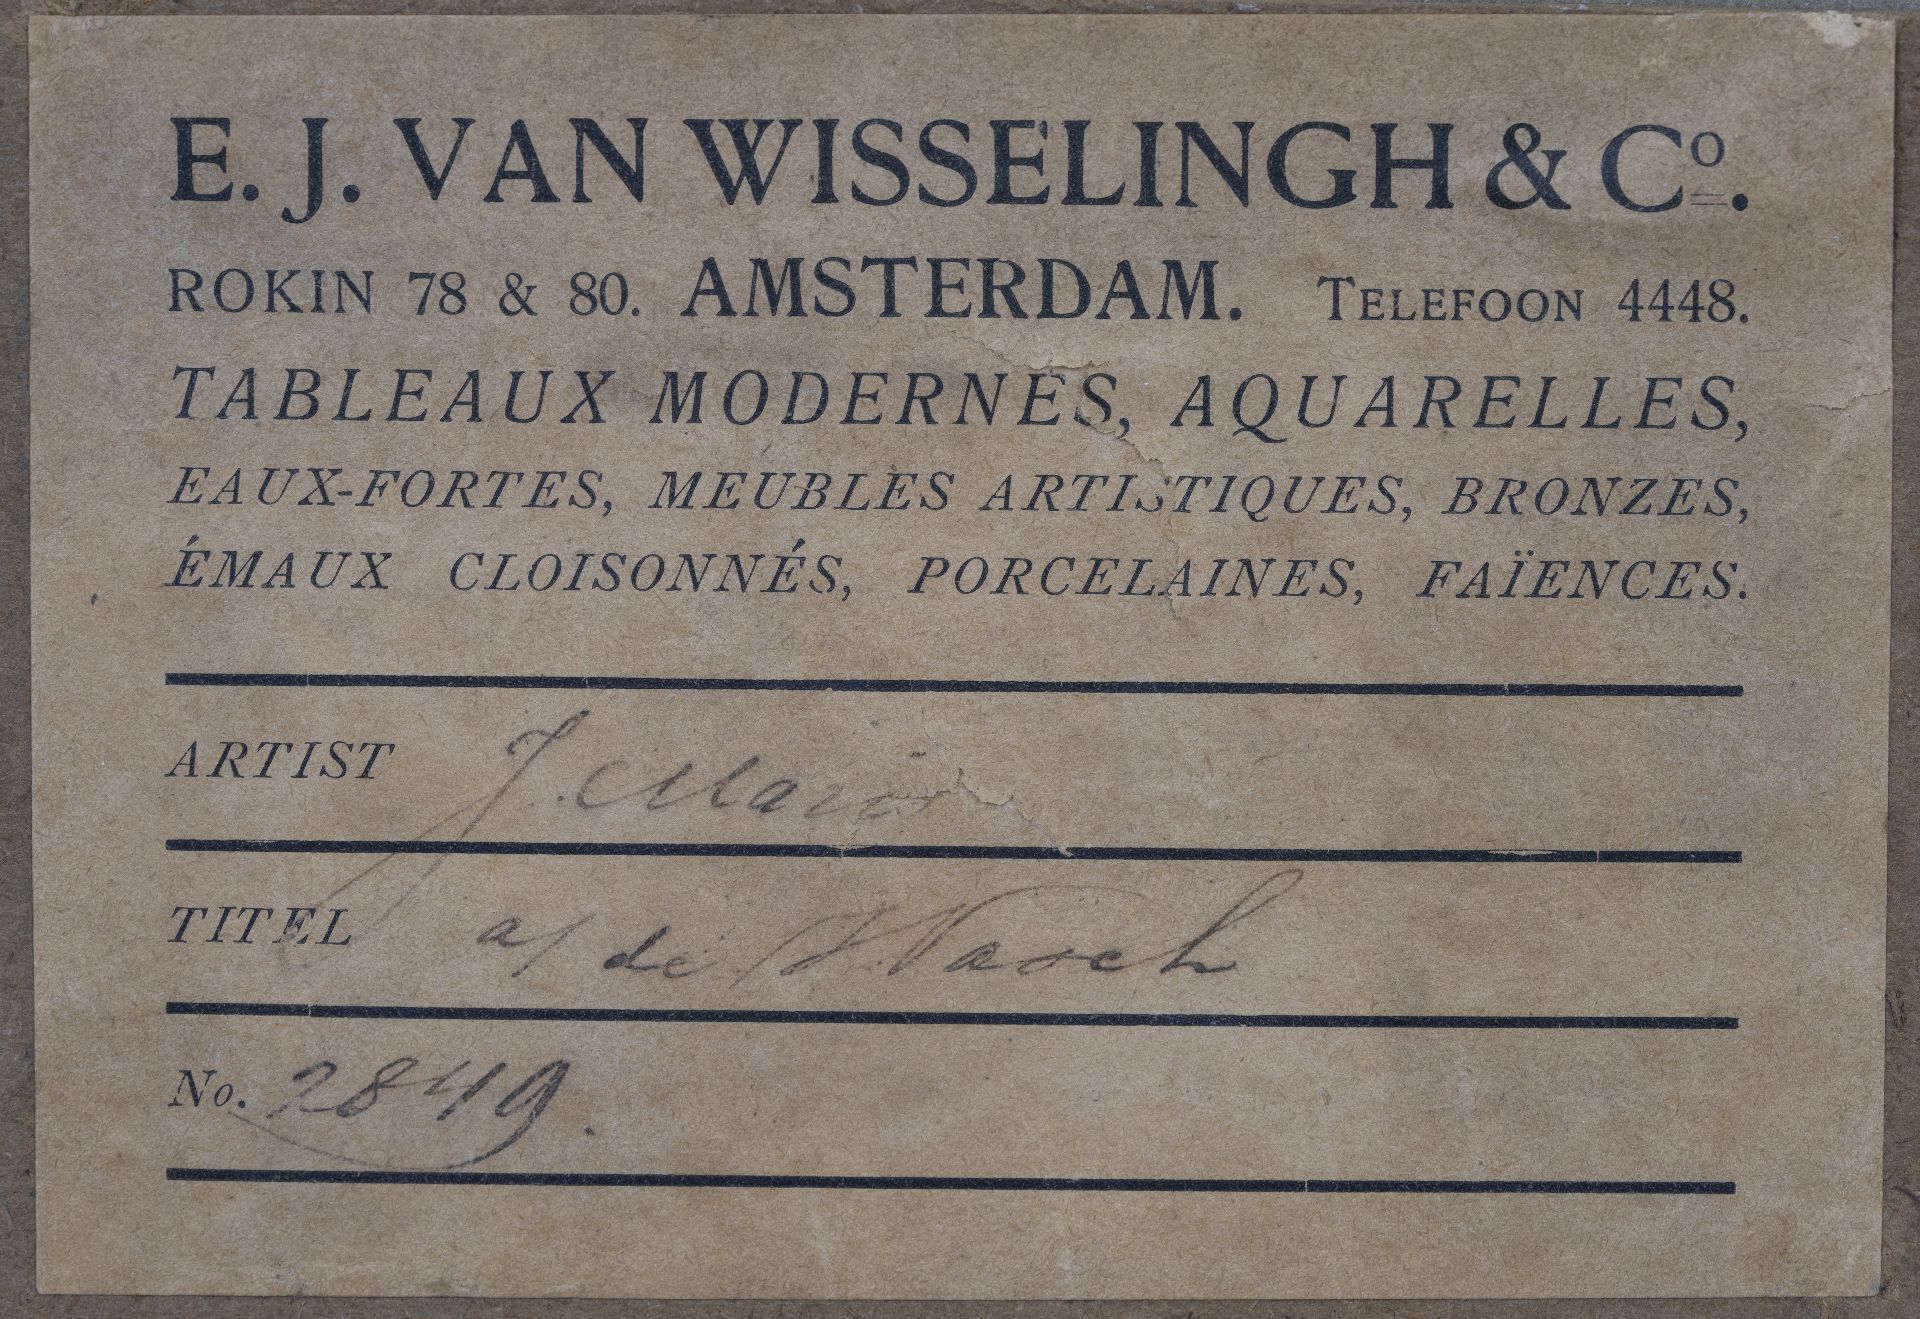 E. J. VAN WISSELINGH & Co.
ROKIN 78 & 80. AMSTERDAM. TELEFOON 4448.
TABLEAUX MODERNES, AQUARELLES,
EAUX-FORTES, MEUBLES ARTISTIQUES, BRONZES,
ÉMAUX CLOISONNÉS, PORCELAINES, FAÏENCES.
ARTIST J. Maris
TITEL a/ de Wasch
No. 2849.